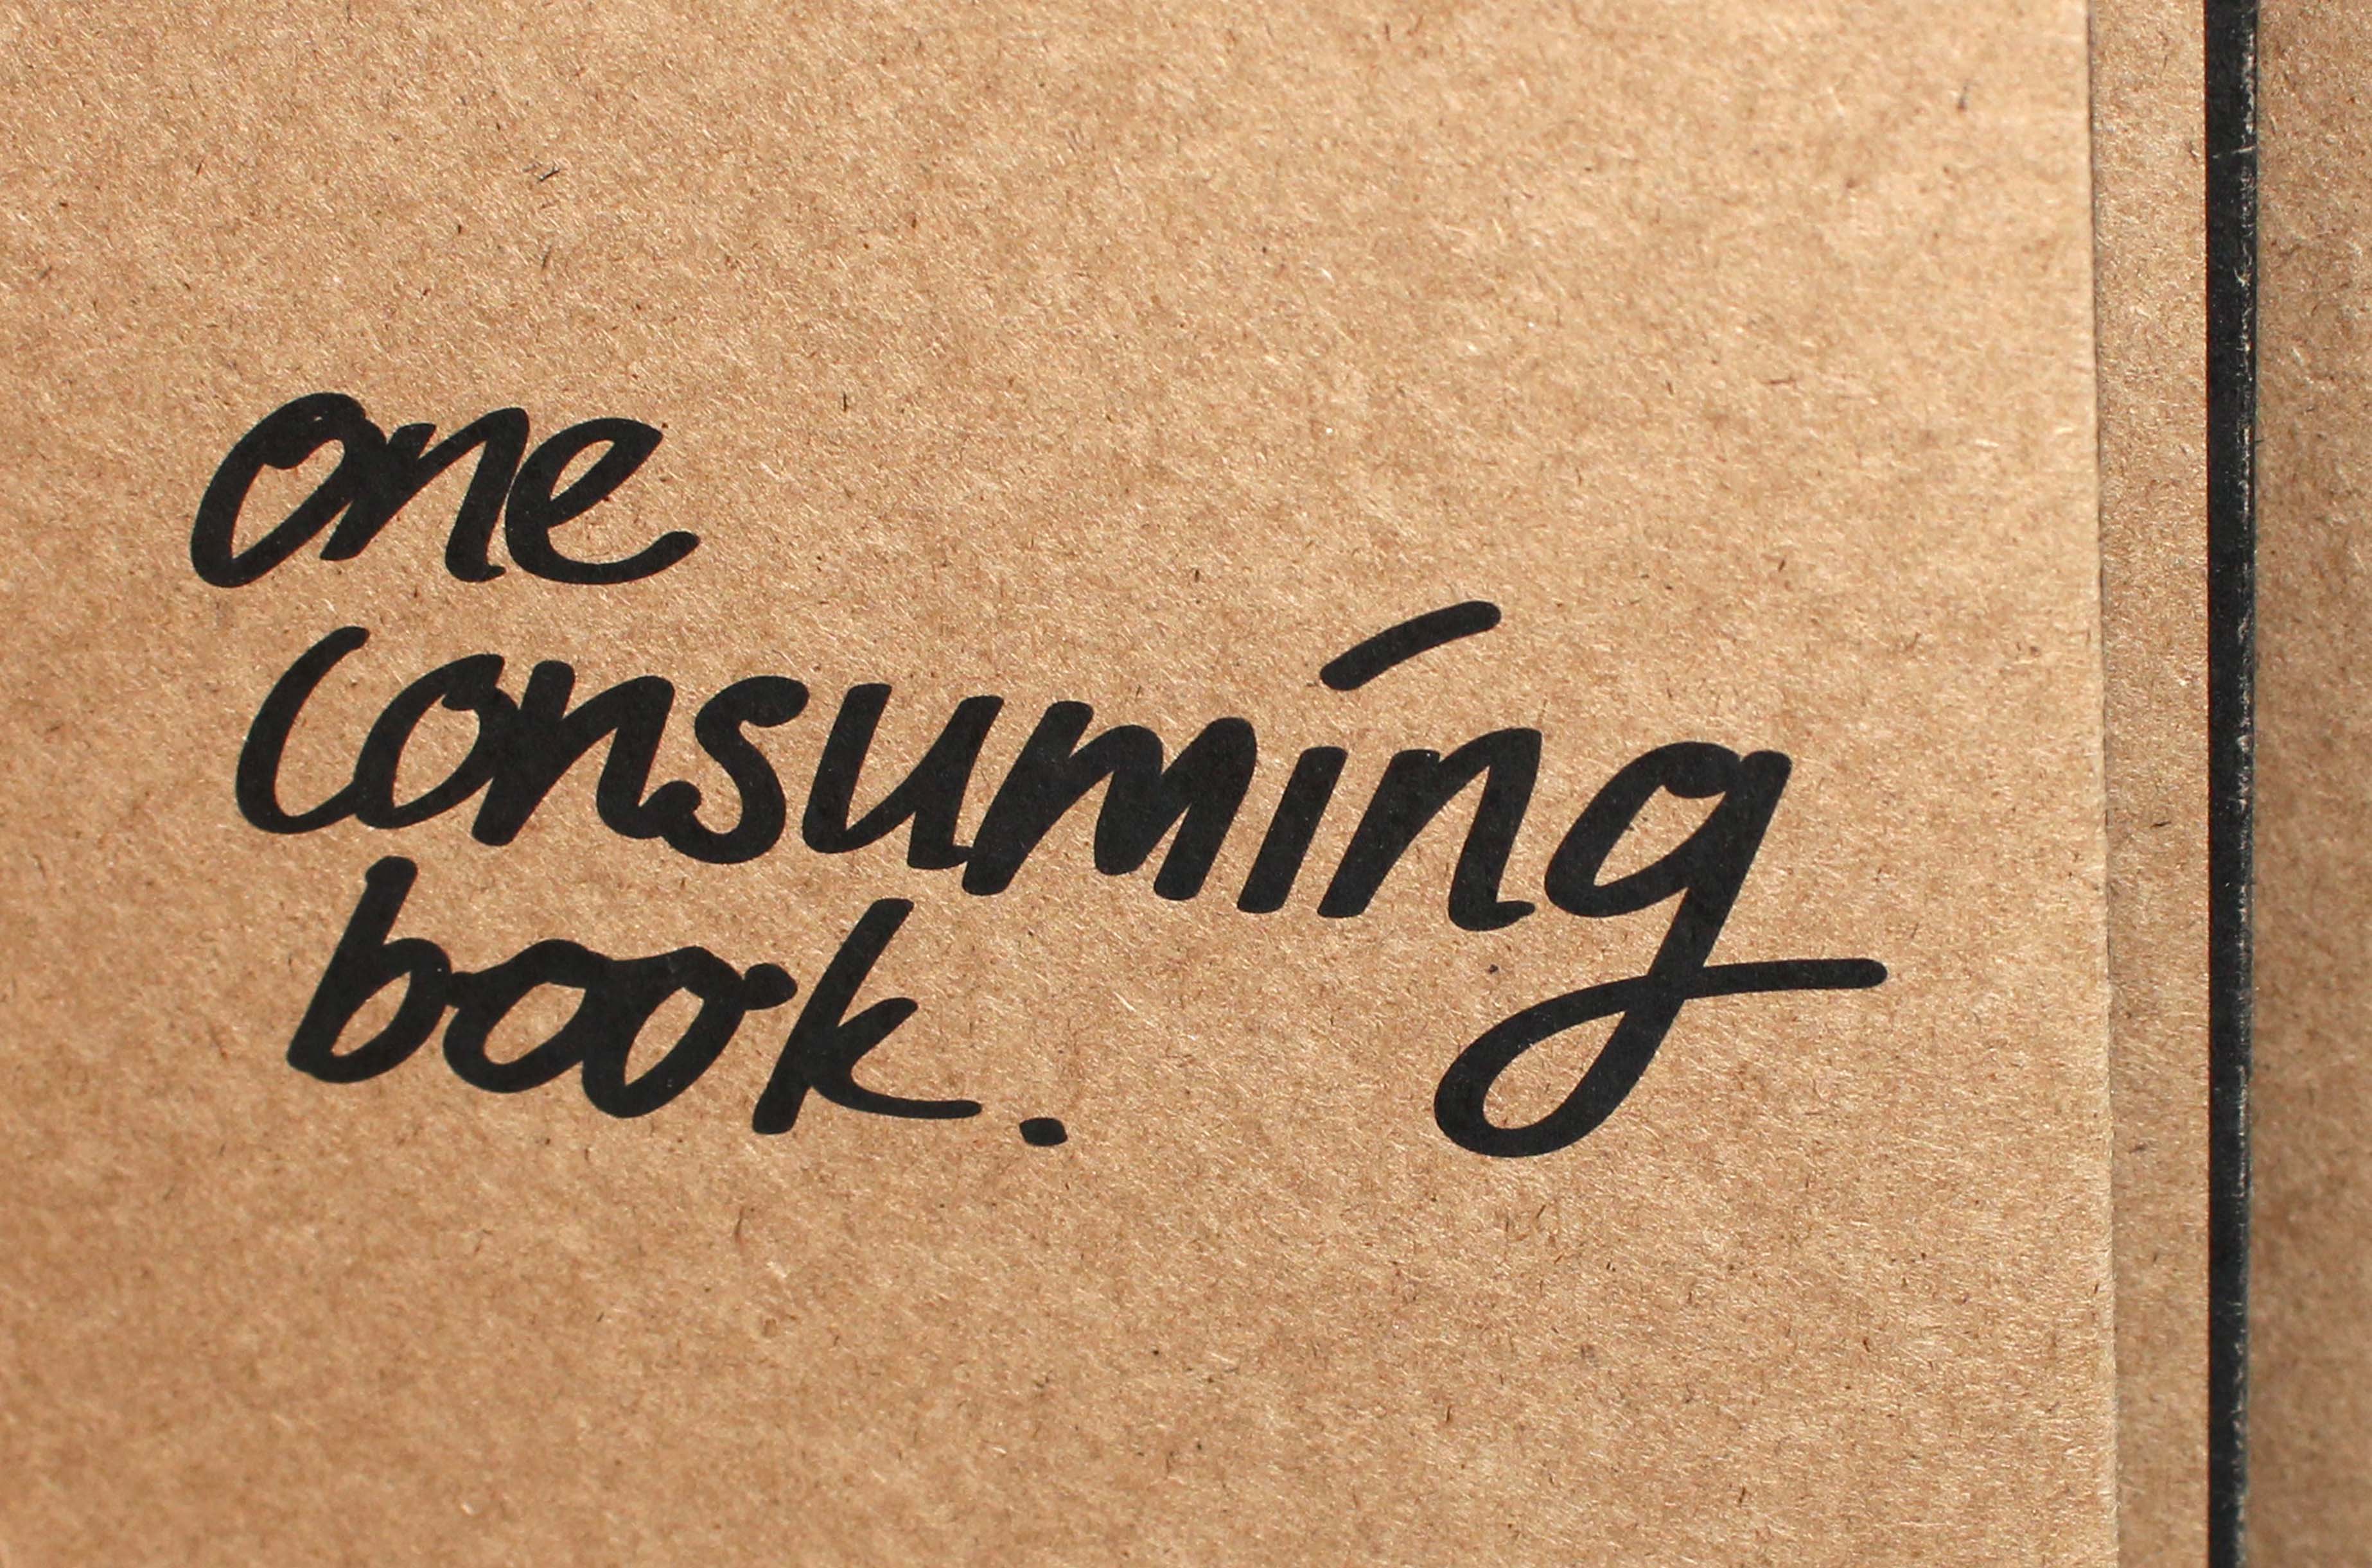 one
consuming
book.